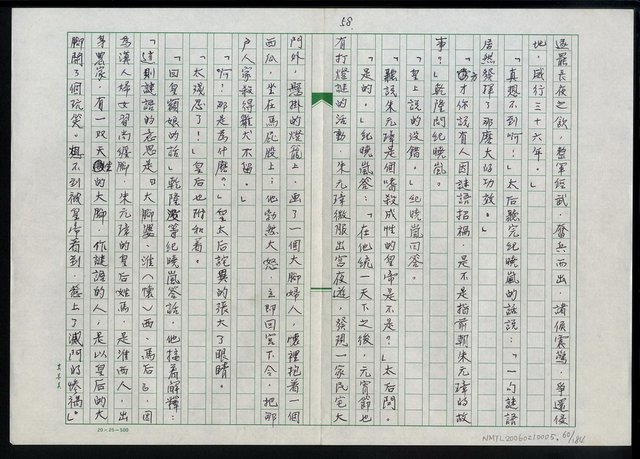 58.
退罷長夜之飲,整軍經武,奮兵而出,諸侯震驚,爭還侵
地,威行三十六年。」
「真想不到啊!」太后聽完紀曉嵐的話說:「一句謎語
居然發揮了那麼大的功效。」
「方才你說有人因謎語招禍,是不是指前朝朱元璋的故
事?」乾隆問紀曉嵐。
「皇上說的沒錯。」紀曉嵐回答。
「聽說朱元璋是個嗜殺成性的皇帝是不是?」太后問。
「是的。」紀曉嵐答:「在他統一天下之後,元宵節也
有打燈謎的活動,朱元璋微服出宮夜遊,發現一家民宅大
門外,懸掛的燈籠上,畫了一個大腳婦人,懷裡抱着一個
西瓜,坐在馬屁股上;他勃然大怒,立即回宮下令,把那
戶人家殺得雞犬不留。」
「啊!那是為什麼?」皇太后詫異的張大了眼睛。
「太殘忍了!」皇后也附和着。
「回皇額娘的話」乾隆沒等紀曉嵐答話,他接着解釋:
「這則謎語的意思是『大腳婆,淮(懷)西,馬后』,因
為漢人婦女習尚纏腳,朱元璋的皇后姓馬,是淮西人,出
身農家,有一双天生的大腳,作謎語的人,是以皇后的大
腳開了個玩笑。想不到被皇帝看到,惹上了滅門的慘禍。」
20×25=500
NMTL20060210005.60/184